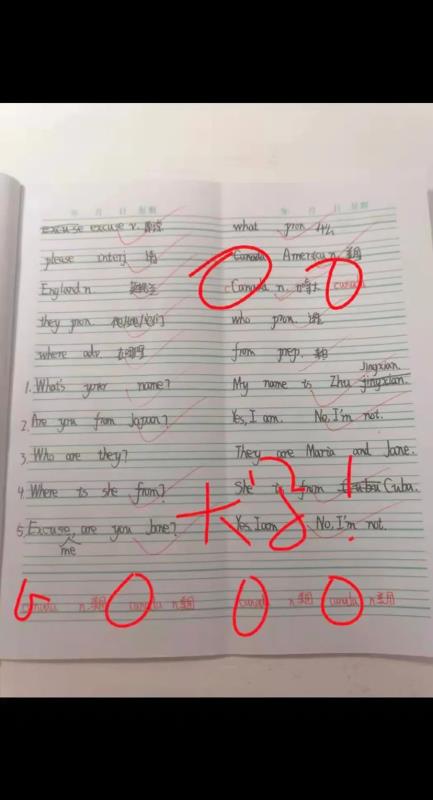 年 月 日 星期 年 月 日 星期
Excuse excuse v. 原谅 what pron 什么
please interj 请 Canada America n. 美国
England n 英格兰 Canada n. 加拿大 canada
they pron. 他们/她们/它们 who pron. 谁
where adv. 在哪里 from prep. 来自
Jingxian.
1. What's your name? My name is Zhu jingxian.
2. Are you from Japan? Yes, I am. No, I'm not.
3. Who are they? They are Maria and Jane.
4. Where is she from? She is from Cuba.
5. Excuse are you Jane? Yes, I am No, I'm not.
me
太好!
canada n.美国 canada n.美国 canada n.美国 canada n.美国